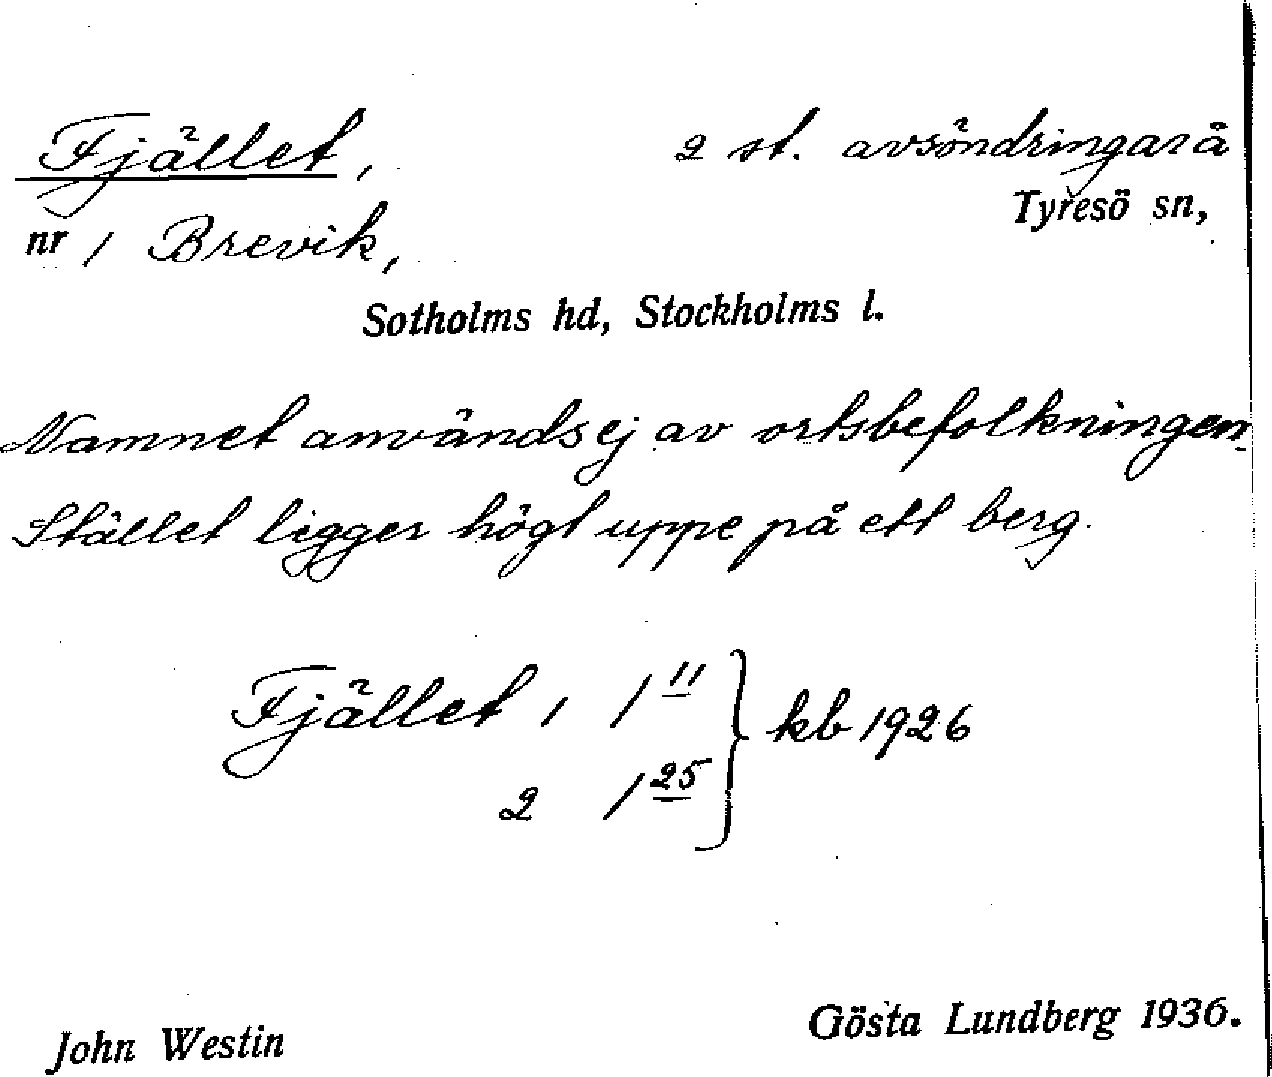 Fjället, 2 st. avsöndringar å
Tyresö sn,
nr 1 Brevik,
Sotholms hd, Stockholms l.
Namnet användes ej av ortsbefolkningen.
Stället ligger högt uppe på ett berg.
Fjället, 1 1 11 } kb 1926
2 1 25
John Westin Gösta Lundberg 1936.